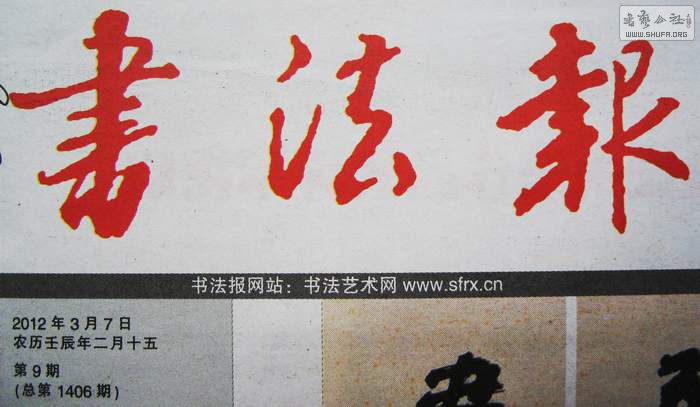 書法報
书艺公社
WWW.SHUFA.ORG
书法报网站：书法艺术网 www.sfrx.cn
2012 年 3 月 7 日
农历壬辰年二月十五
第 9 期
(总第 1406 期)